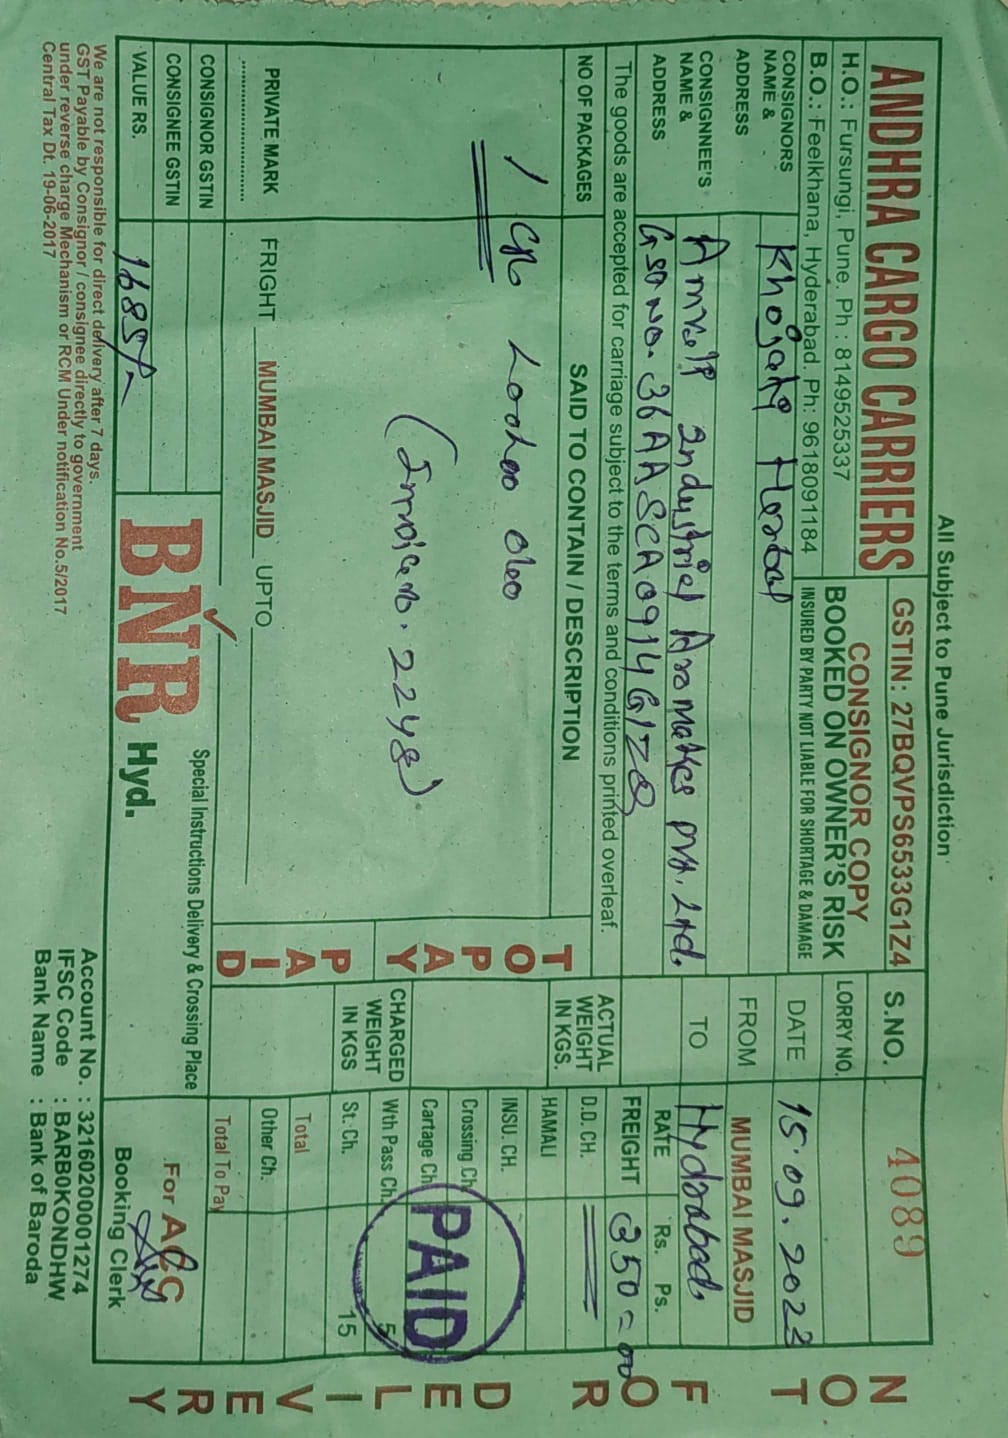 All Subject to Pune Jurisdiction
ANDHRA CARGO CARRIERS
H.O.: Fursungi, Pune, Ph : 8149525337
B.O.: Feelkhana, Hyderabad. Ph: 9618091184
GSTIN: 27BQVPS6533G1Z4
CONSIGNOR COPY
BOOKED ON OWNER'S RISK
INSURED BY PARTY NOT LIABLE FOR SHORTAGE & DAMAGE
S.NO. 4089
LORRY NO.
DATE 15.09.2023
FROM MUMBAI MASJID
TO Hyderabad.
CONSIGNORS
NAME &
ADDRESS
CONSIGNNEE'S
NAME &
ADDRESS
Industrial Aromatics Pvt. Ltd.
GST NO. 36AASCA0914G1ZQ
The goods are accepted for carriage subject to the terms and conditions printed overleaf.
NO OF PACKAGES
SAID TO CONTAIN / DESCRIPTION
1
(Invoice no. 2248)
PRIVATE MARK
FRIGHT MUMBAI MASJID UPTO
CONSIGNOR GSTIN
CONSIGNEE GSTIN
VALUE RS. 16851/-
TO PAY
PAID
ACTUAL
WEIGHT
IN KGS.
CHARGED
WEIGHT
IN KGS
RATE Rs. Ps.
FREIGHT 350=00
D.D. CH.
HAMALI
INSU. CH.
Crossing Ch.
Cartage Ch.
Wth Pass Ch. 5
St. Ch. 15
Total
Other Ch.
Total To Pay
PAID
BNR Hyd.
Special Instructions Delivery & Crossing Place
For ACC
Booking Clerk
We are not responsible for direct delivery after 7 days.
GST Payable by Consignor / consignee directly to government
under reverse charge Mechanism or RCM Under notification No.5/2017
Central Tax Dt. 19-06-2017
Account No. : 32160200001274
IFSC Code : BARB0KONDHW
Bank Name : Bank of Baroda
NOT FOR DELIVERY